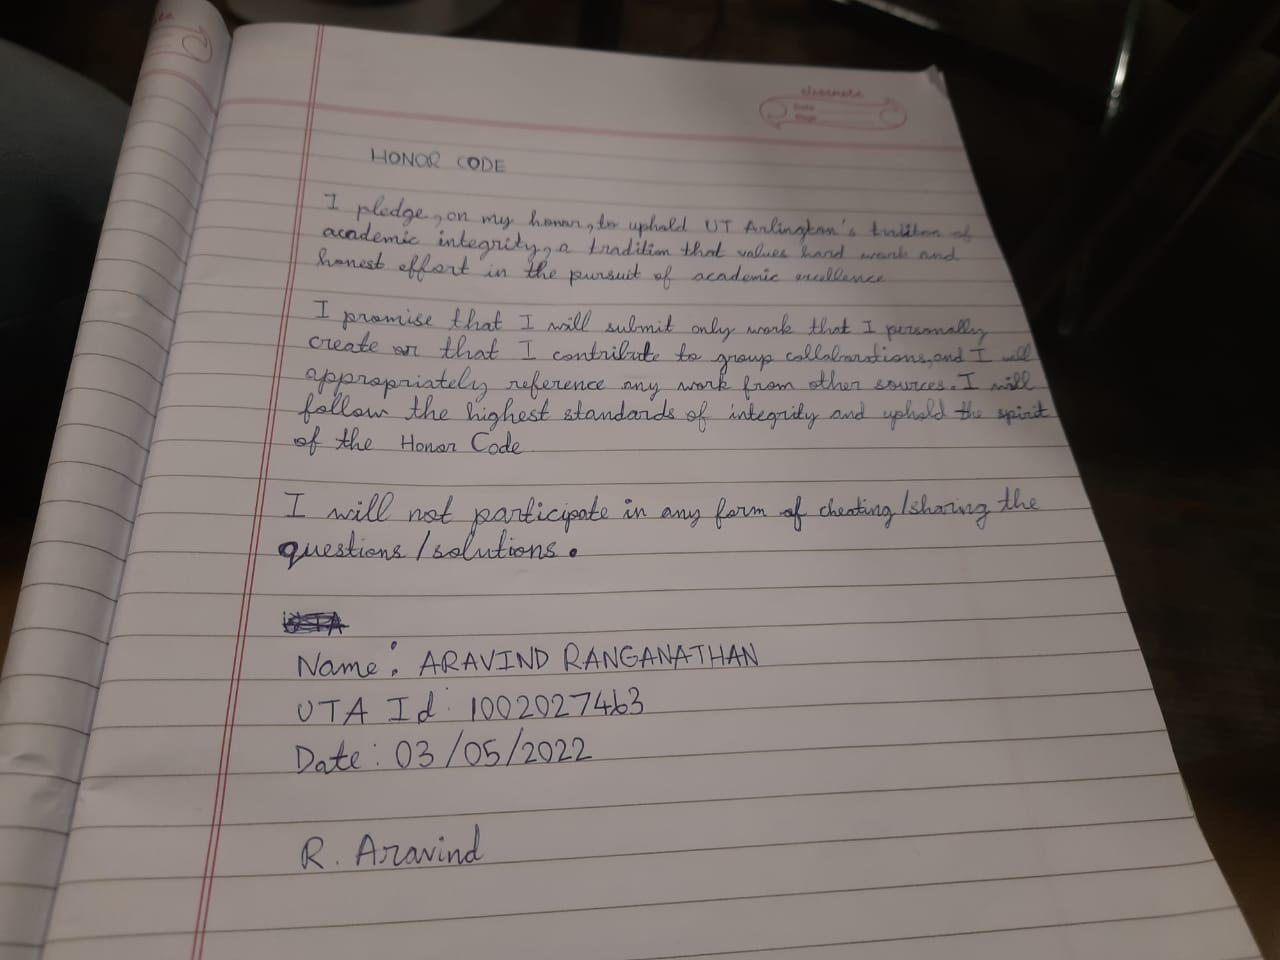 classmate
Date
Page
HONOR CODE
I pledge, on my honor, to uphold UT Arlington's tradition of
academic integrity, a tradition that values hard work and
honest effort in the pursuit of academic excellence
I promise that I will submit only work that I personally
create or that I contribute to group collaborations, and I will
appropriately reference any work from other sources. I will
follow the highest standards of integrity and uphold the spirit
of the Honor Code
I will not participate in any form of cheating/sharing the
questions/solutions.
Name: ARAVIND RANGANATHAN
UTA Id: 1002027463
Date: 03/05/2022
R. Aravind